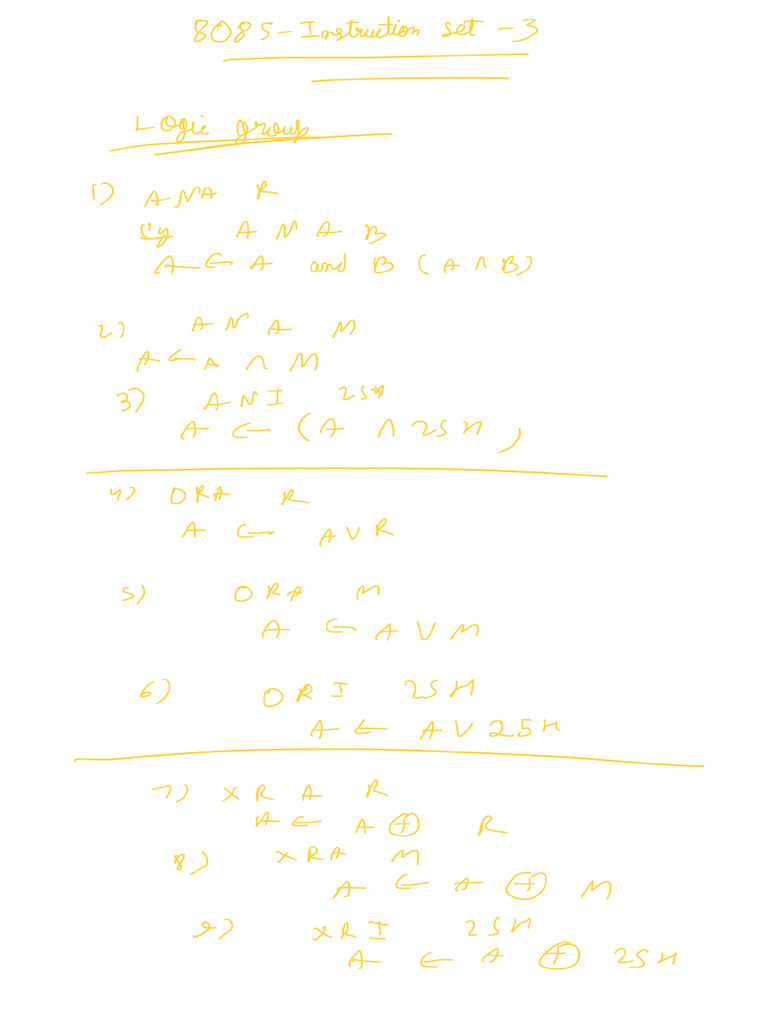 8085 - Instruction set - 3
Logic group
1) ANA R
ANA B
A ← A and B (A ∧ B)
2) ANA M
A ← A ∧ M
3) ANI 25H
A ← (A ∧ 25H)
4) ORA R
A ← A V R
5) ORA M
A ← A V M
6) ORI 25H
A ← A V 25H
7) XRA R
A ← A ⊕ R
8) XRA M
A ← A ⊕ M
9) XRI 25H
A ← A ⊕ 25H